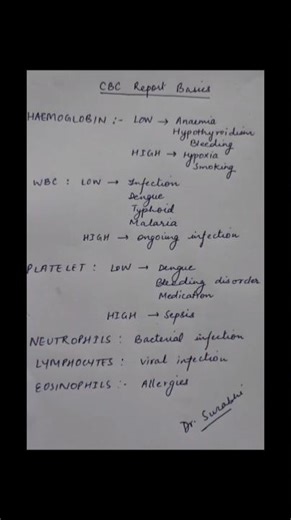 CBC Report Basics
HAEMOGLOBIN :- LOW → Anaemia
Hypothyroidism
Bleeding
HIGH → Hypoxia
Smoking
WBC : LOW → Infection
Dengue
Typhoid
Malaria
HIGH → ongoing infection
PLATELET : LOW → Dengue
Bleeding disorder
Medication
HIGH → Sepsis
NEUTROPHILS : Bacterial infection
LYMPHOCYTES : Viral infection
EOSINOPHILS :- Allergies
Dr. Surabhi